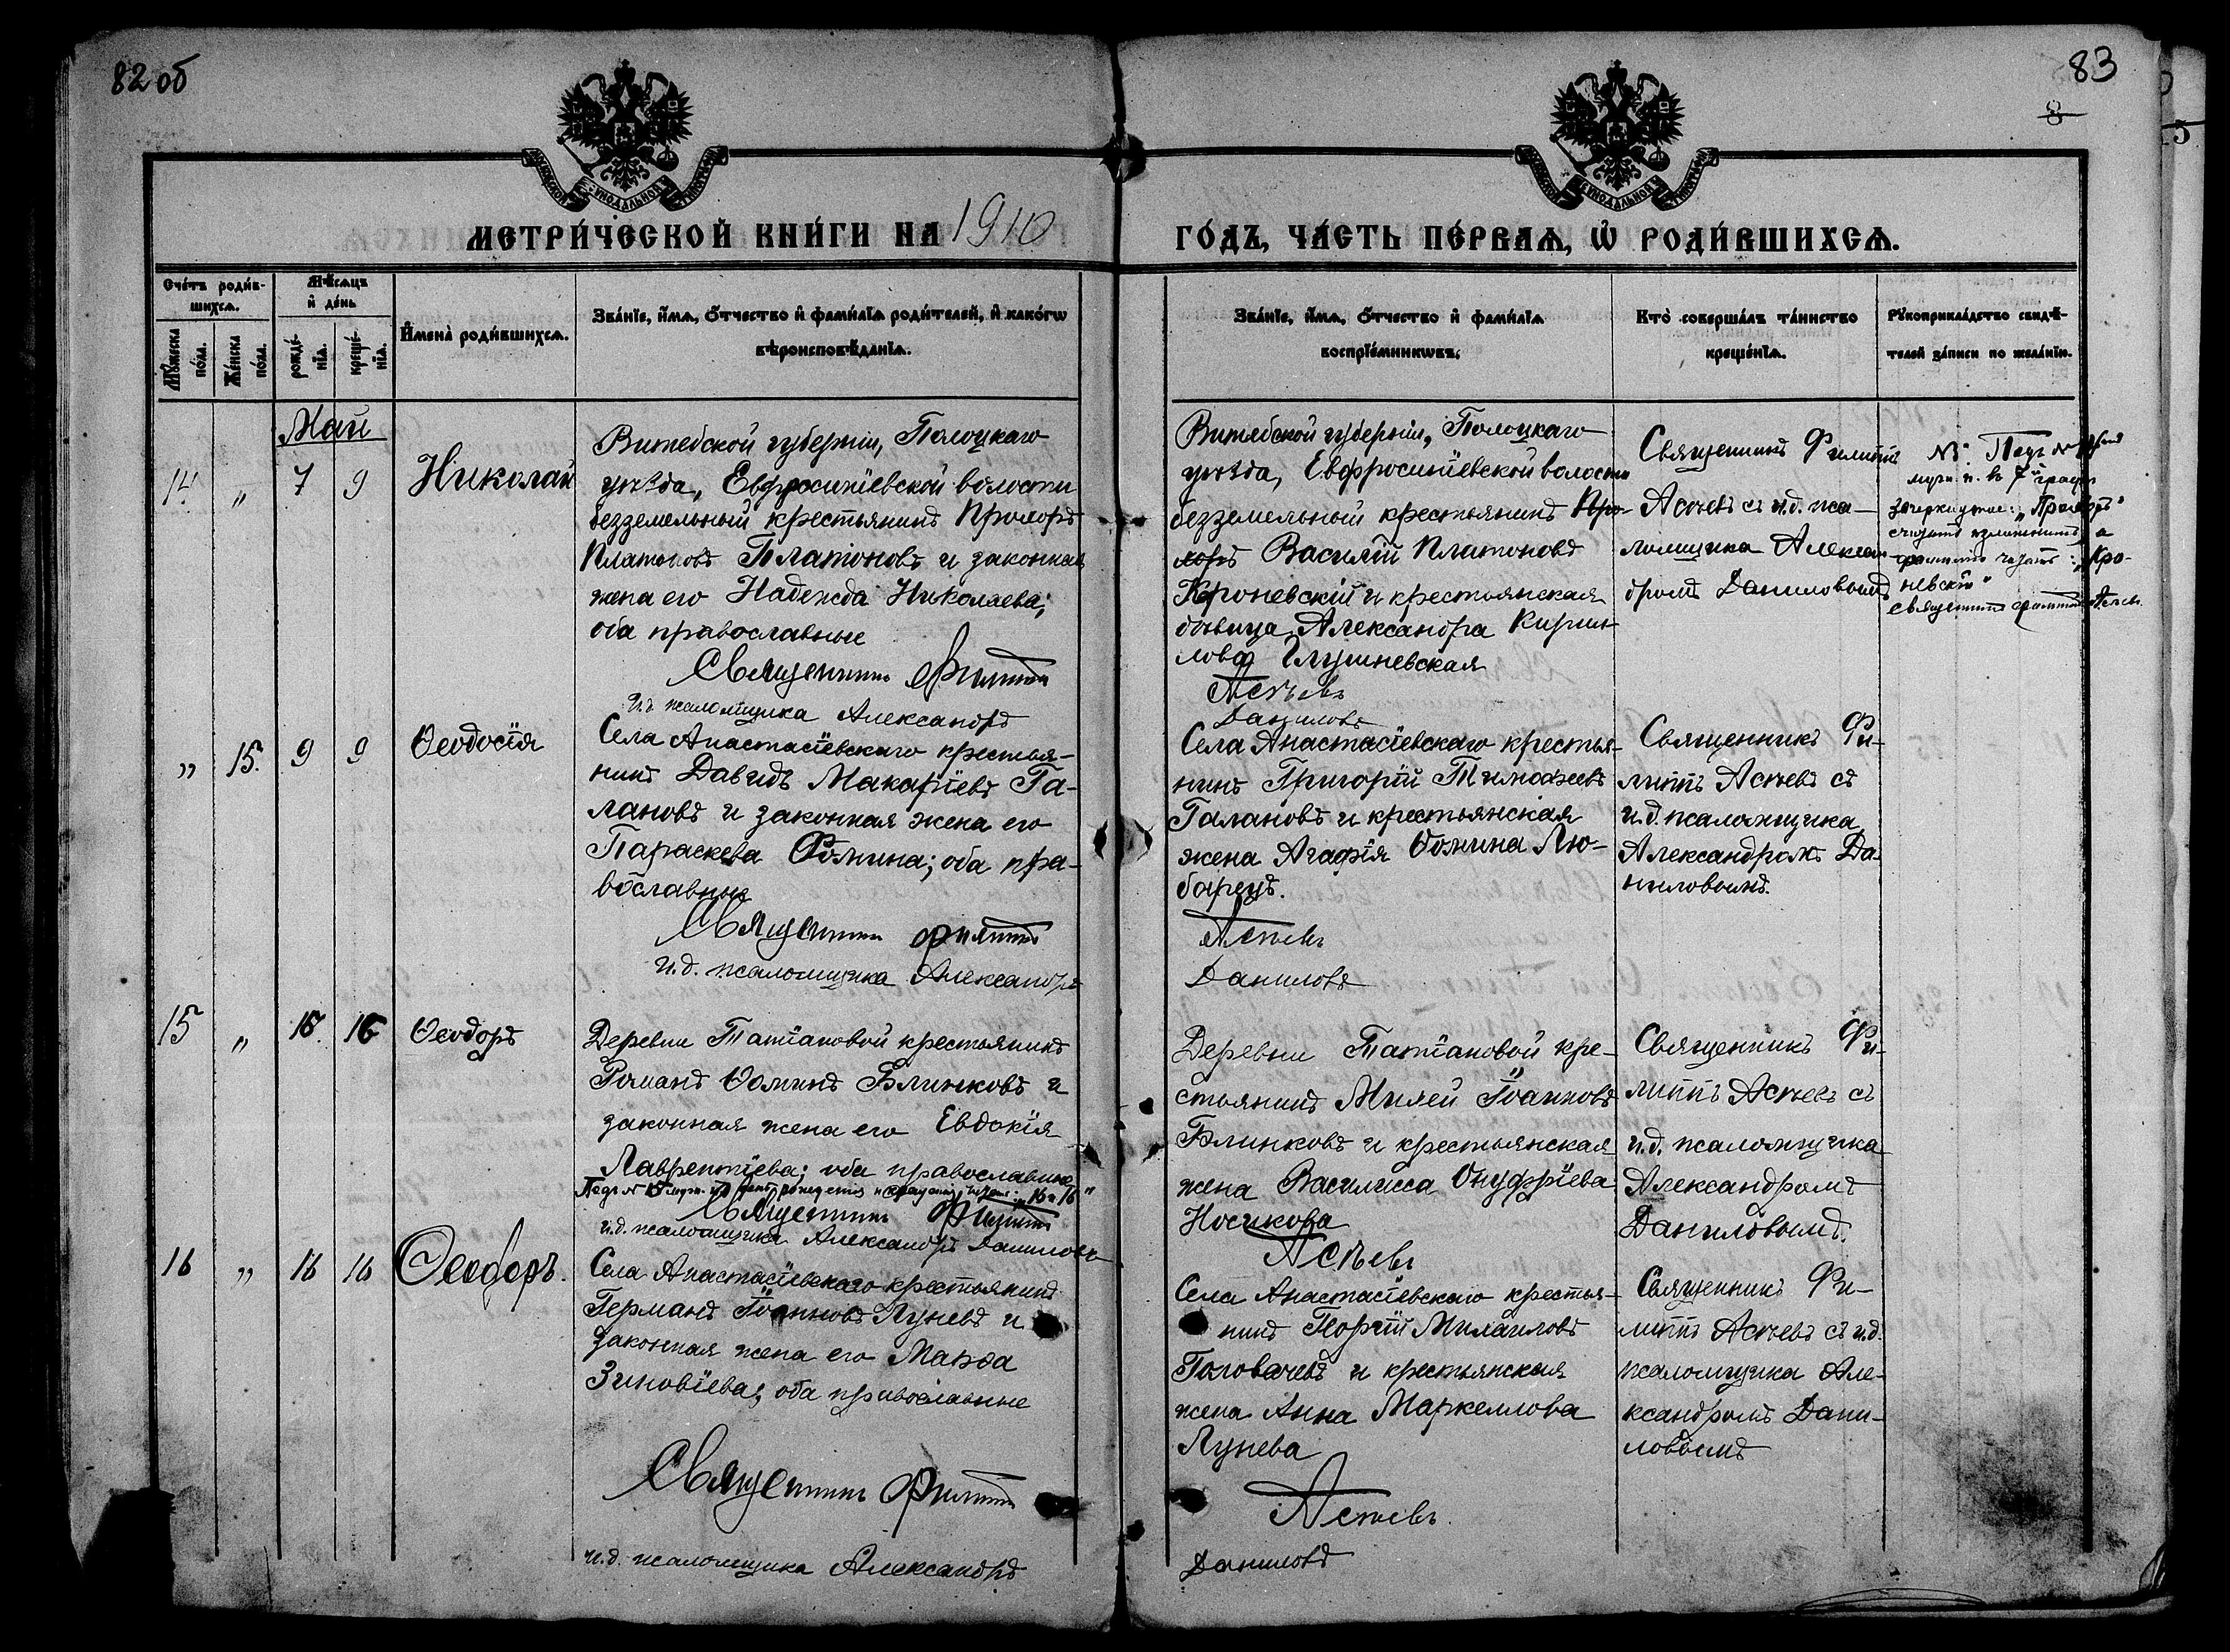 82 об
83
8
МЕТРИ́ЧЕСКОЙ КНИ́ГИ НА 1910
ГО́ДЪ, ЧА́СТЬ ПЕ́РВАѦ, Ѡ҆ РОДИ́ВШИХСѦ.
Сче́тъ роди́в-
шихсѧ.
Мѣ́сѧцъ
и҆ де́нь
Мꙋ́жеска
по́ла.
Же́нска
по́ла.
рожде́-
нїѧ.
креще́-
нїѧ.
И҆мена̀ роди́вшихсѧ.
Зва́нїе, и҆́мѧ, ѻ҆́тчество и҆ фами́лїѧ роди́телей, и҆ како́гѡ
вѣроисповѣ́данїѧ.
Зва́нїе, и҆́мѧ, ѻ҆́тчество и҆ фами́лїѧ
воспрїе́мникѡвъ.
Кто̀ соверша́лъ та́инство
креще́нїѧ.
Рꙋкоприкла́дство свидѣ́-
телей за́писи по жела́нїю.
Май
14 „ 7 9 Николай
Витебской губерніи, Полоцкаго
уѣзда, Евфросиніевской волости
безземельный крестьянинъ Прохоръ
Платоновъ Платоновъ и законная
жена его Надежда Николаева;
оба православные
Священникъ Филиппъ
и.д. псаломщика Александръ
Витебской губерніи, Полоцкаго
уѣзда, Евфросиніевской волости
безземельный крестьянинъ Про-
хоръ Василій Платоновъ
Кроневскій и крестьянская
дѣвица Александра Кирил-
лова Глушневская
Асѣевъ
Даниловъ
Священникъ Филиппъ
Асѣевъ съ и.д. пса-
ломщика Алексан-
дромъ Даниловымъ
Подъ № 14
муж. п. въ 7 графѣ
зачеркнутое: „Прохоръ"
считать излишнимъ, а
читать: „Кро-
невскій"
Священникъ Филиппъ Асѣевъ
„ 15. 9 9 Ѳеодосія
Села Анастасіевскаго крестья-
нинъ Давидъ Макаріевъ Га-
лановъ и законная жена его
Параскева Ѳомина; оба пра-
вославные
Священникъ Филиппъ
и.д. псаломщика Александръ
Села Анастасіевскаго крестья-
нинъ Григорій Тимоѳеевъ
Галановъ и крестьянская
жена Агафія Ѳомина Лю-
барецъ.
Асѣевъ
Даниловъ
Священникъ Фи-
липпъ Асѣевъ съ
и.д. псаломщика
Александромъ Да-
ниловымъ.
15 „ 16. 16 Ѳеодоръ
Деревни Татіановой крестьянинъ
Романъ Ѳоминъ Блинковъ и
законная жена его Евдокія
Лаврентіева; оба православные
Подъ № 15 муж. п. день рожденія и крещенія читать: „16 и 16"
Священникъ Филиппъ
и.д. псаломщика Александръ Даниловъ
Деревни Татіановой кре-
стьянинъ Милей Іоанновъ
Блинковъ и крестьянская
жена Василисса Онуфріева
Носикова
Асѣевъ
Священникъ Фи-
липпъ Асѣевъ съ
и.д. псаломщика
Александромъ
Даниловымъ.
16 „ 16 16 Ѳеодоръ.
Села Анастасіевскаго крестьянинъ
Германъ Іоанновъ Луневъ и
законная жена его Марѳа
Зиновіева; оба православные
Священникъ Филиппъ
и.д. псаломщика Александръ
Села Анастасіевскаго крестья-
нинъ Георгій Михаиловъ
Головачевъ и крестьянская
жена Анна Маркеллова
Лунева
Асѣевъ.
Даниловъ
Священникъ Фи-
липпъ Асѣевъ съ и.д.
псаломщика Але-
ксандромъ Дани-
ловымъ